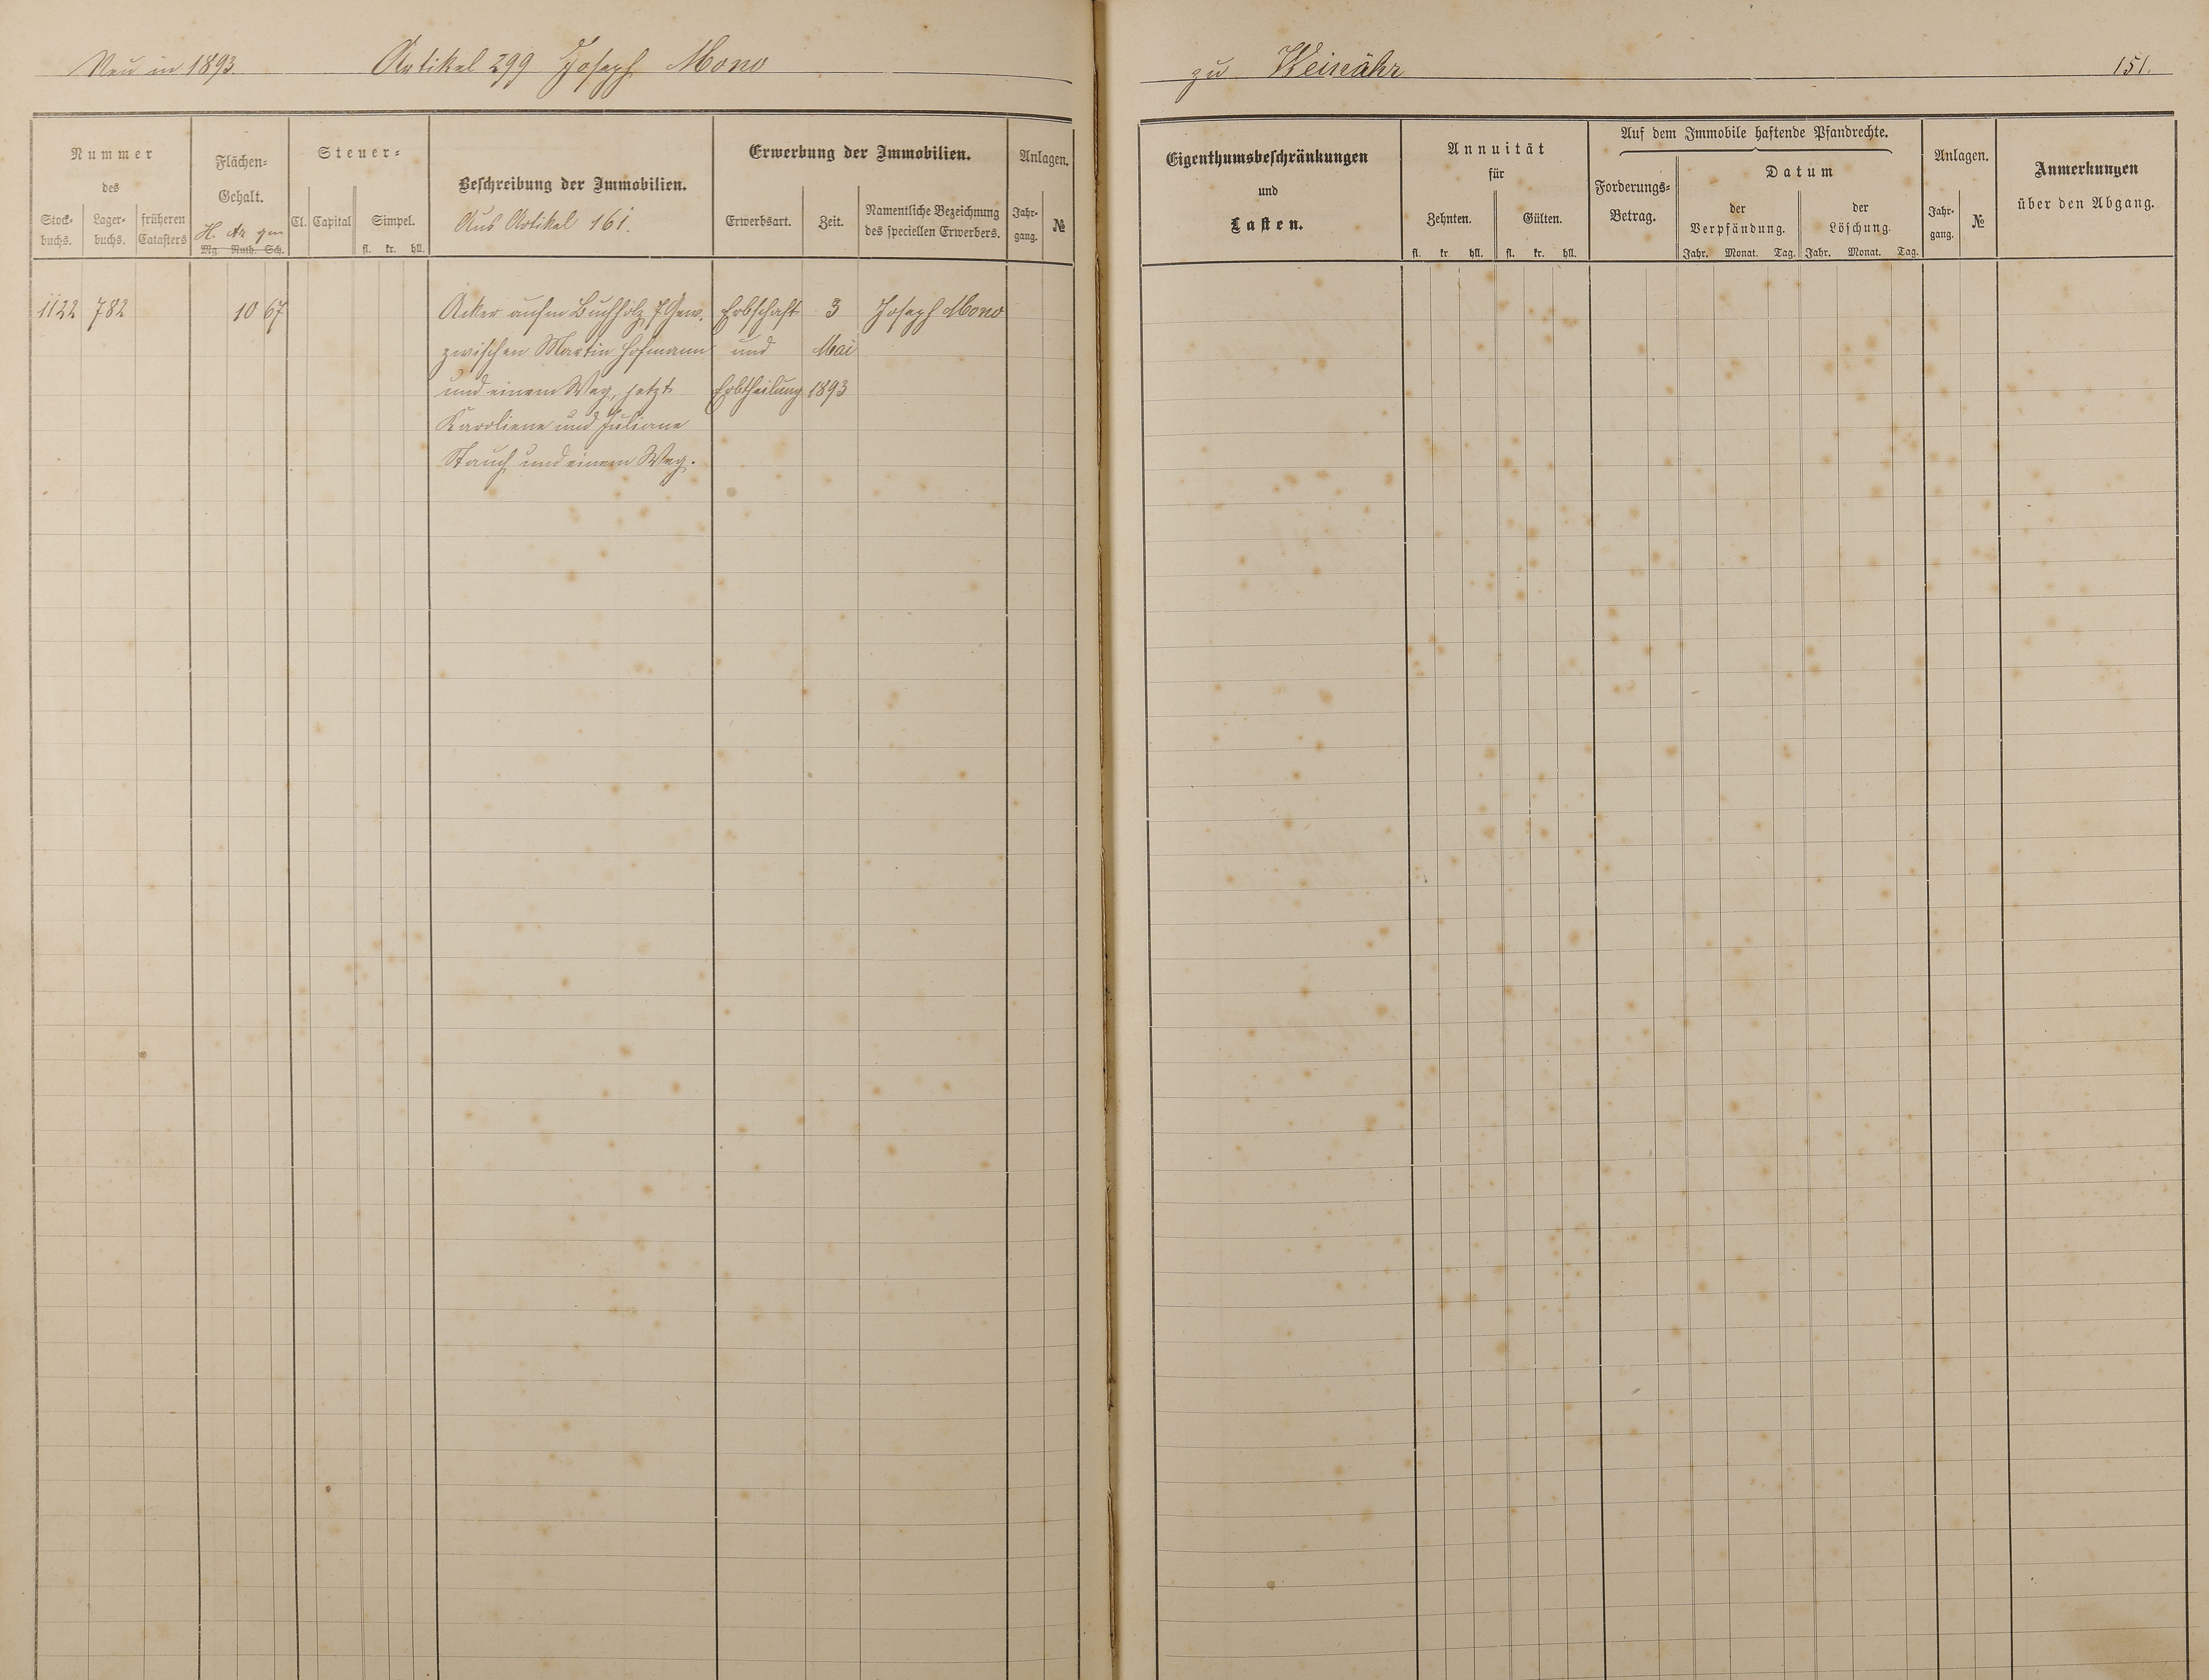 Neu in 1893. Artikel 299 Joseph Mono
zu Weinähr 151.
Nummer
des
Stock-
buchs.
Lager-
buchs.
früheren
Catasters
Flächen-
Gehalt.
H. Ar qm
Mg. Ruth. Sch.
Steuer-
Cl. Capital
Simpel.
fl. kr. hll.
Beschreibung der Immobilien.
Aus Artikel 161.
Erwerbung der Immobilien.
Erwerbsart. Zeit.
Namentliche Bezeichnung
des speciellen Erwerbers.
Anlagen.
Jahr-
gang.
№
Eigenthumsbeschränkungen
und
Lasten.
Annuität
für
Zehnten. Gülten.
fl. kr. hll. fl. kr. hll.
Auf dem Immobile haftende Pfandrechte.
Forderungs-
Betrag.
Datum
der
Verpfändung.
Jahr. Monat. Tag.
der
Löschung.
Jahr. Monat. Tag.
Anlagen.
Jahr-
gang.
№
Anmerkungen
über den Abgang.
1122 782 10 67 Acker aufm Buchholz 7 Gew. Erbschaft 3 Joseph Mono
zwischen Martin Hofmann und Mai
und einem Weg, jetzt Erbtheilung 1893
Karoliene und Juliane
Stauch und einem Weg.